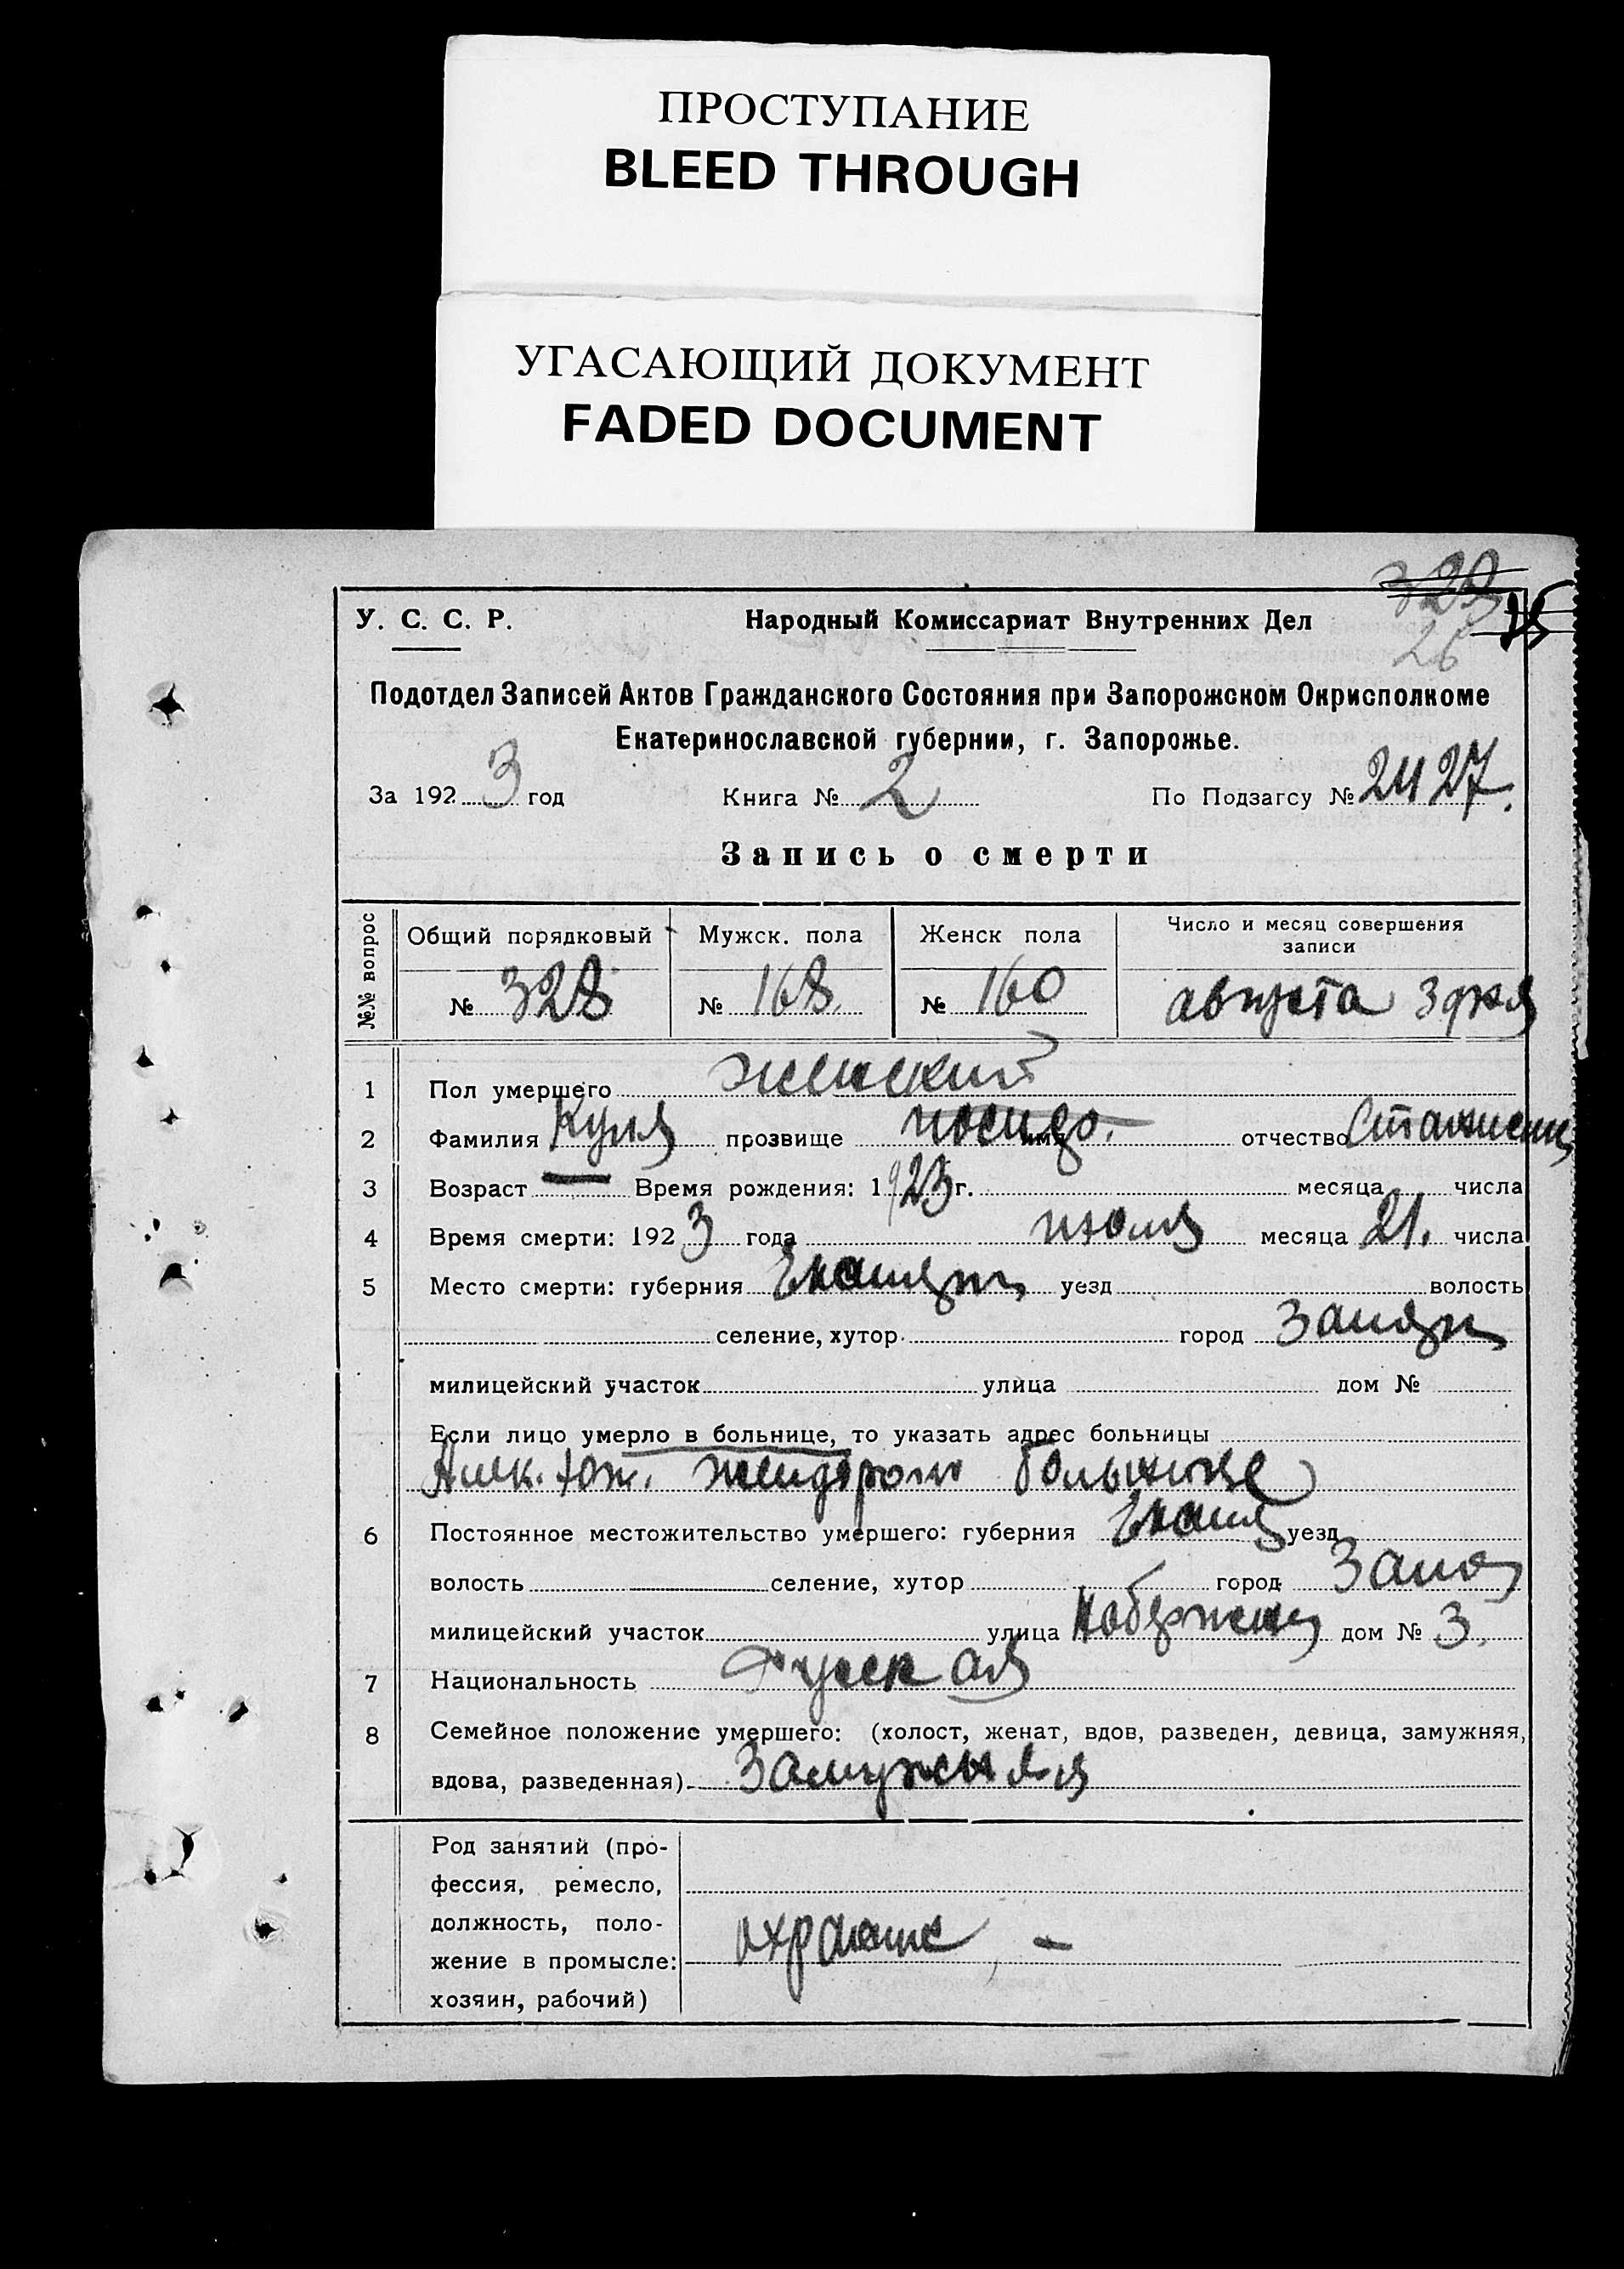 ПРОСТУПАНИЕ
BLEED THROUGH
УГАСАЮЩИЙ ДОКУМЕНТ
FADED DOCUMENT
329
26
У. С. С. Р. Народный Комиссариат Внутренних Дел
Подотдел Записей Актов Гражданского Состояния при Запорожском Окрисполкоме
Екатеринославской губернии, г. Запорожье.
За 1923 год Книга № 2 По Подзагсу № 2427.
Запись о смерти
№№ вопрос Общий порядковый Мужск. пола Женск пола Число и месяц совершения записи
№ 328 № 168. № 160 августа 3 дня
1 Пол умершего женский
2 Фамилия прозвище имя отчество
3 Возраст — Время рождения: 1923 г. месяца числа
4 Время смерти: 1923 года июля месяца 21. числа
5 Место смерти: губерния уезд волость
селение, хутор город
милицейский участок улица дом №
Если лицо умерло в больнице, то указать адрес больницы
больнице
6 Постоянное местожительство умершего: губерния уезд
волость селение, хутор город
милицейский участок улица дом № 3.
7 Национальность русская
8 Семейное положение умершего: (холост, женат, вдов, разведен, девица, замужняя,
вдова, разведенная). замужняя
Род занятий (про-
фессия, ремесло,
должность, поло-
жение в промысле:
хозяин, рабочий)